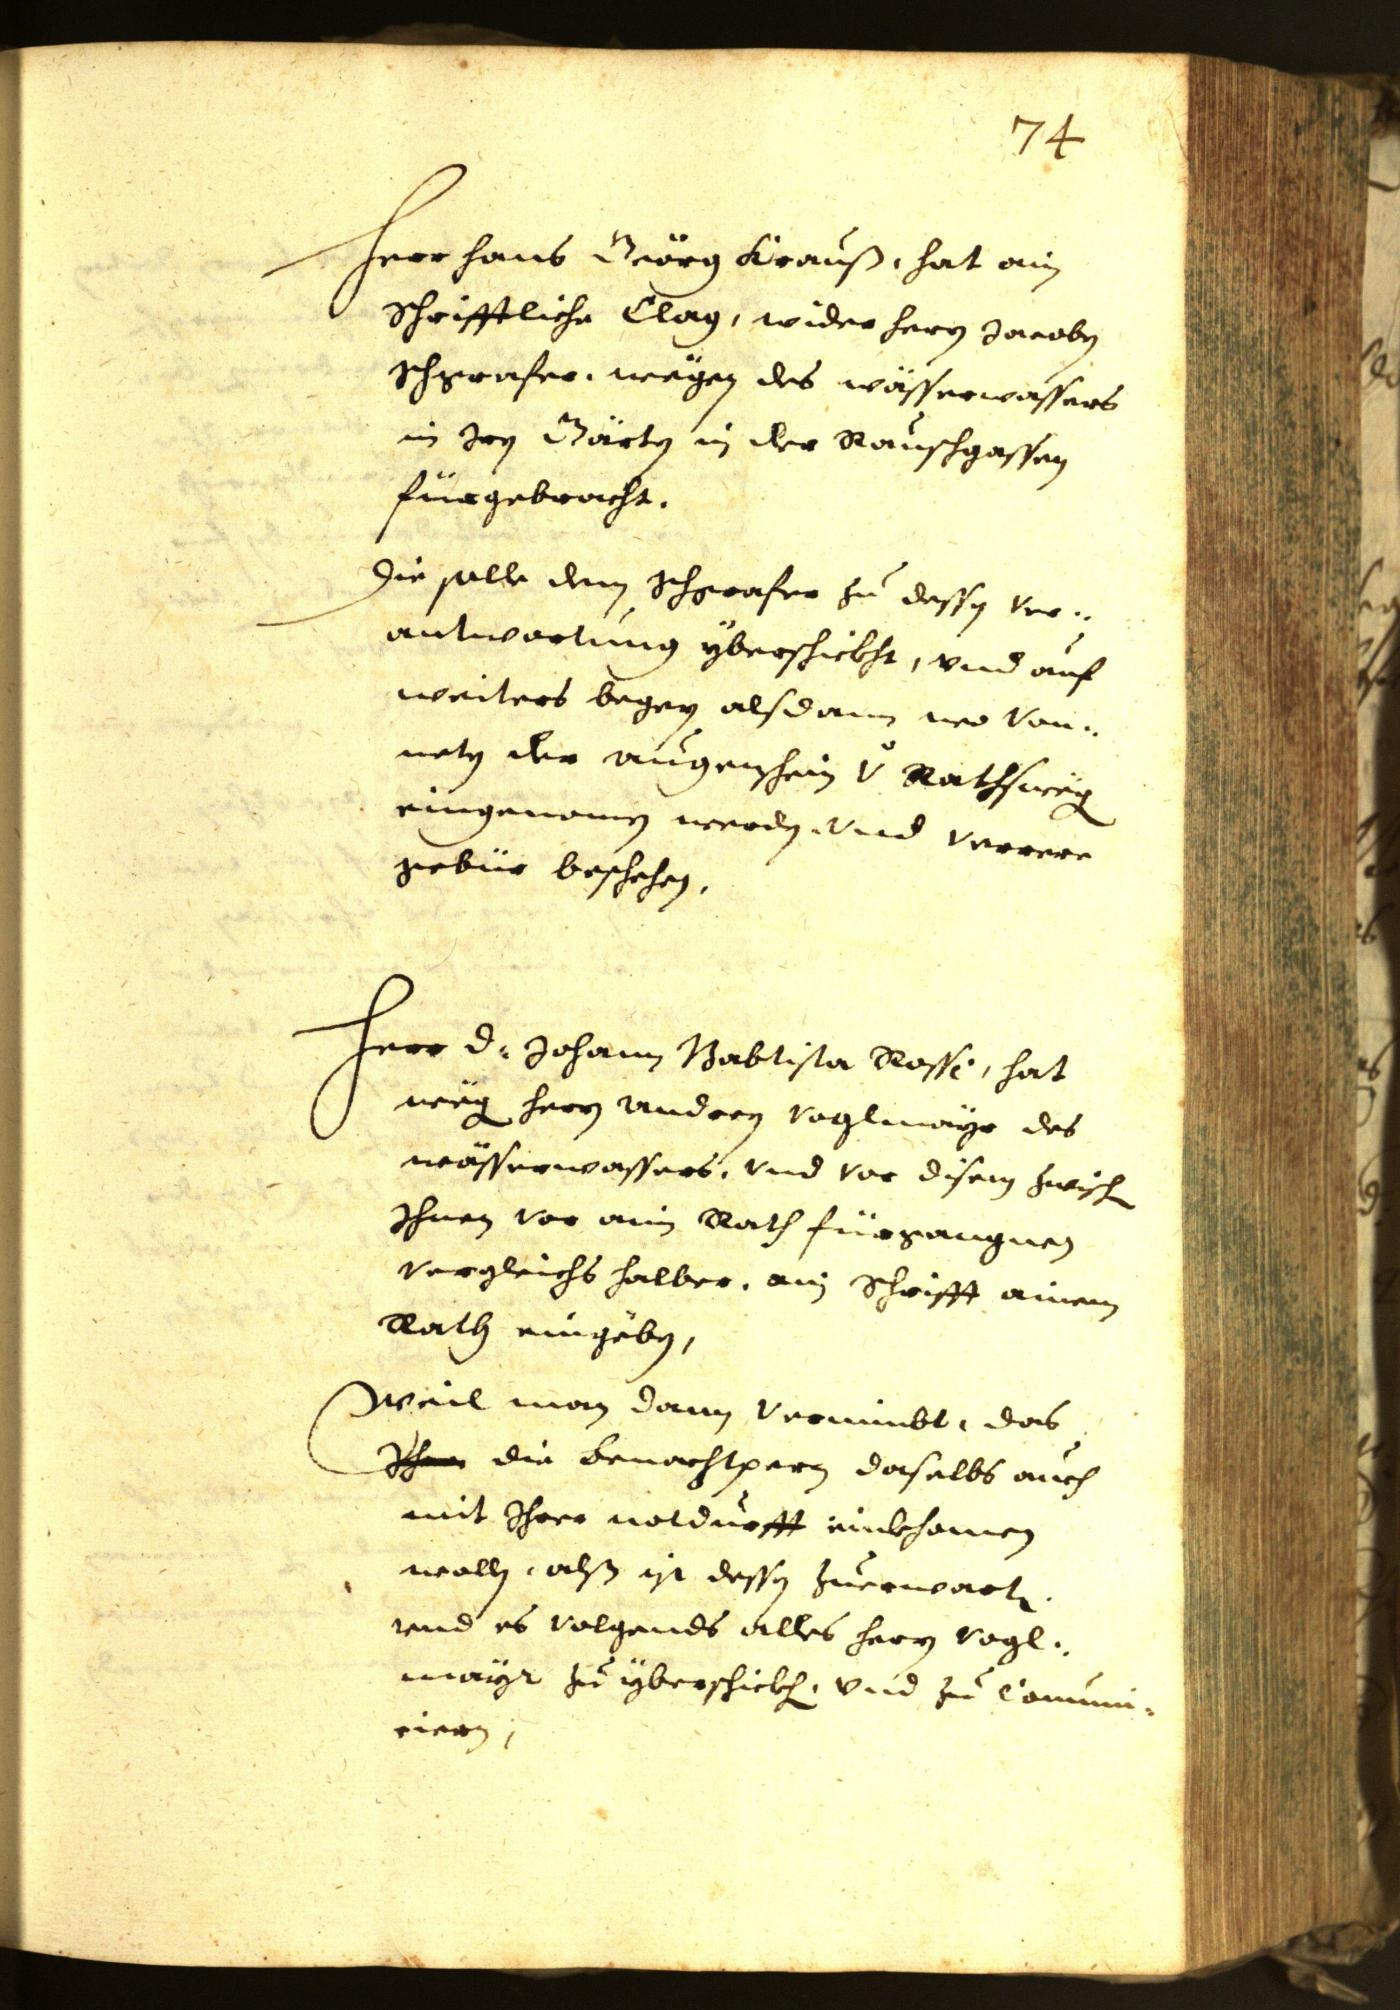 74
Herr Hans Geörg Krauß, hat ain
Schrifftliche Clag, wider hern Jacoben
Schgraffer, wegen des wässerwassers
in Irn Gärtn in der Rauschgassen
fürgebracht.
Die solle dem Schgraffer zu dessn ver„
antwortung yberschickht, vnd auf
weiters begern alsdann von
der augenschein v Rathsweg
eingenomen werdn, vnd verrere
gebür beschehen.
Herr D: Johann Babtista Rossi, hat
weg hern Andreen Voglmayr des
wässerwassers, vnd vor disem zwisch
Ihnen vor ain Rath fürgangnen
vergleichs halber, ain Schrifft ainem
Rath eingeben,
Weil man dann vernimbt, das
die benachtpern daselbs auch
mit Ihrer notdurfft einkhomen
welln, alß ist dessn zuerwart,
vnd es volgends alles hern Vogl„
mayr zu yberschickh, vnd zu Comuni„
ciern,